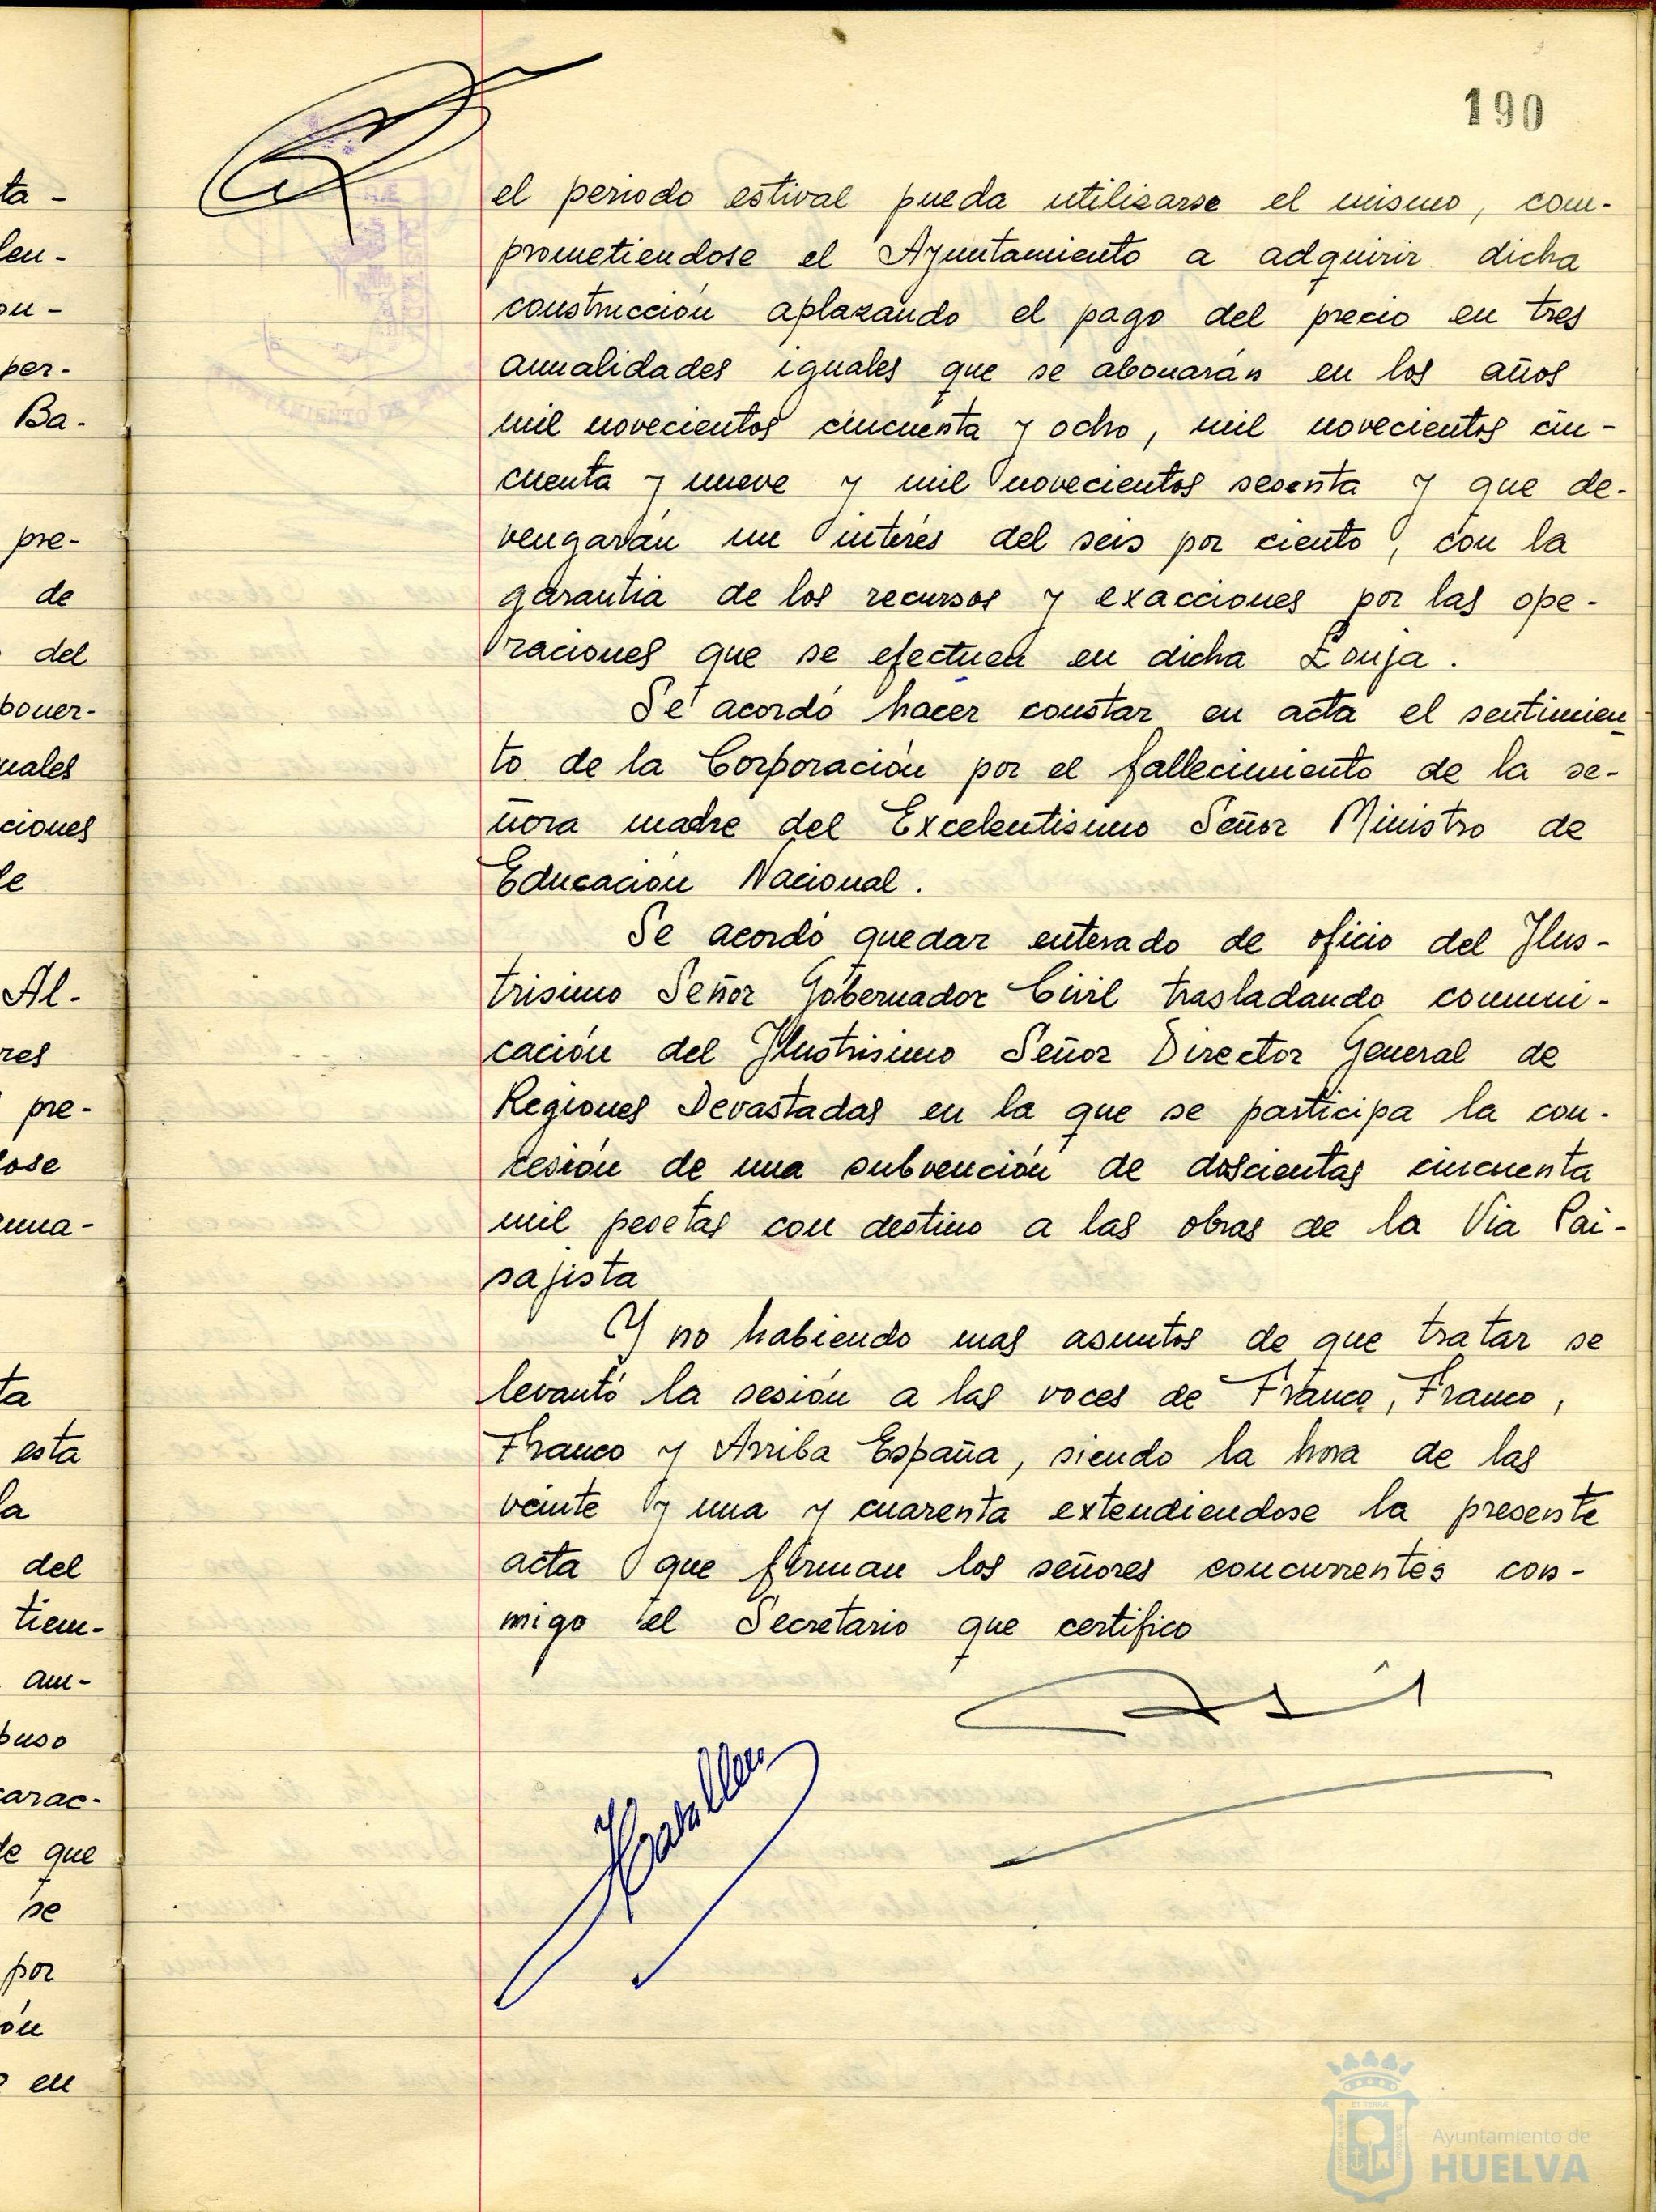 190
el periodo estival pueda utilizarse el mismo, com-
prometiendose el Ayuntamiento a adquirir dicha
construcción aplazando el pago del precio en tres
anualidades iguales que se abonarán en los años
mil novecientos cincuenta y ocho, mil novecientos cin-
cuenta y nueve y mil novecientos sesenta y que de-
vengarán un interés del seis por ciento, con la
garantia de los recursos y exacciones por las ope-
raciones que se efectuen en dicha Lonja.
Se acordó hacer constar en acta el sentimien
to de la Corporación por el fallecimiento de la se-
ñora madre del Excelentisimo Señor Ministro de
Educación Nacional.
Se acordó quedar enterado de oficio del Ilus-
trisimo Señor Gobernador Civil trasladando comuni-
cación del Ilustrisimo Señor Director General de
Regiones Devastadas en la que se participa la con-
cesión de una subvención de doscientas cincuenta
mil pesetas con destino a las obras de la Via Pai-
sajista
Y no habiendo mas asuntos de que tratar se
levantó la sesión a las voces de Franco, Franco,
Franco y Arriba España, siendo la hora de las
veinte y una y cuarenta extendiendose la presente
acta que firman los señores concurrentes con-
migo el Secretario que certifico
ta -
len-
on -
per-
Ba-
pre-
de
del
poner-
uales
ciones
le
Al-
res
pre-
dose
auna-
ta
esta
la
del
tiem-
am-
puso
carac-
de que
se
por
ón
en
Ayuntamiento de
HUELVA